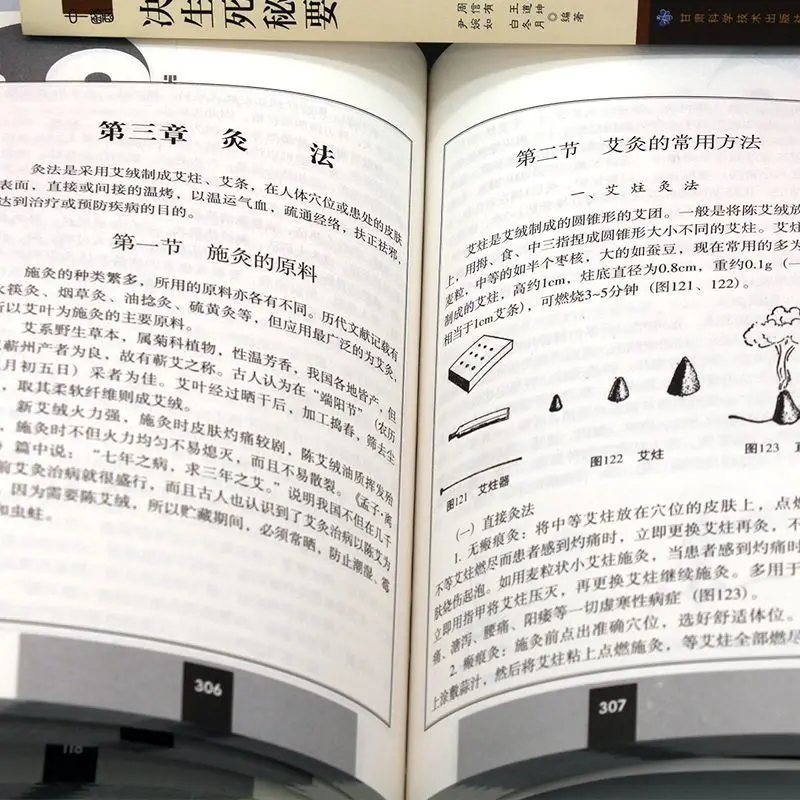 决
生
死
秘
要
周信有 王道坤
尹婉如 白冬月 编著
甘肃科学技术出版社
第三章 灸 法
灸法是采用艾绒制成艾炷、艾条，在人体穴位或患处的皮肤
表面，直接或间接的温烤，以温运气血，疏通经络，扶正祛邪，
达到治疗或预防疾病的目的。
第一节 施灸的原料
施灸的种类繁多，所用的原料亦各有不同。历代文献记载有
火筷灸、烟草灸、油捻灸、硫黄灸等，但应用最广泛的为艾灸，
所以艾叶为施灸的主要原料。
艾系野生草本，属菊科植物，性温芳香，我国各地皆产，但
以蕲州产者为良，故有蕲艾之称。古人认为在“端阳节”（农历
五月初五日）采者为佳。艾叶经过晒干后，加工捣舂，筛去尘
，取其柔软纤维则成艾绒。
新艾绒火力强，施灸时皮肤灼痛较剧，陈艾绒油质挥发殆
，施灸时不但火力均匀不易熄灭，而且不易散裂。《孟子·离
》篇中说：“七年之病，求三年之艾。”说明我国不但在几千
前艾灸治病就很盛行，而且古人也认识到了艾灸治病以陈艾为
，因为需要陈艾绒，所以贮藏期间，必须常晒，防止潮湿、霉
和虫蛀。
306
118
第二节 艾灸的常用方法
一、艾炷灸法
艾炷是艾绒制成的圆锥形的艾团。一般是将陈艾绒放
上，用拇、食、中三指捏成圆锥形大小不同的艾炷。艾炷
麦粒，中等的如半个枣核，大的如蚕豆，现在常用的多为
制成的艾炷，高约1cm，炷底直径为0.8cm，重约0.1g（一
相当于1cm艾条），可燃烧3~5分钟（图121、122）。
图121 艾炷器
图122 艾炷
图123 直
(一) 直接灸法
1. 无瘢痕灸：将中等艾炷放在穴位的皮肤上，点燃
不等艾炷燃尽而患者感到灼痛时，立即更换艾炷再灸，不
肤烧伤起泡。如用麦粒状小艾炷施灸，当患者感到灼痛时
立即用指甲将艾炷压灭，再更换艾炷继续施灸。多用于
痛、溏泻、腰痛、阳痿等一切虚寒性病症（图123）。
2. 瘢痕灸：施灸前点出准确穴位，选好舒适体位。
上涂敷蒜汁，然后将艾炷粘上点燃施灸，等艾炷全部燃尽
307